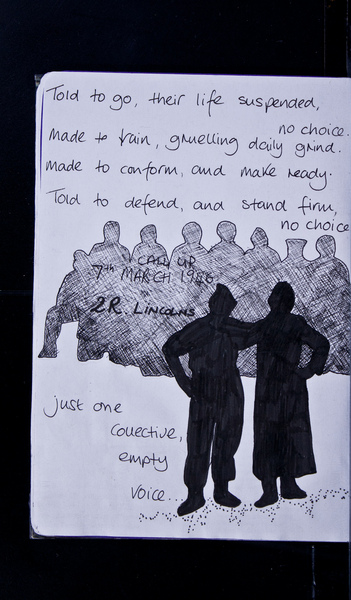 Told to go, their life suspended,
no choice.
made to train, gruelling daily grind.
made to conform, and make ready.
Told to defend, and stand firm,
no choice
CALL UP
7th MARCH
2R LINCOLNS
just one
collective,
empty
voice...